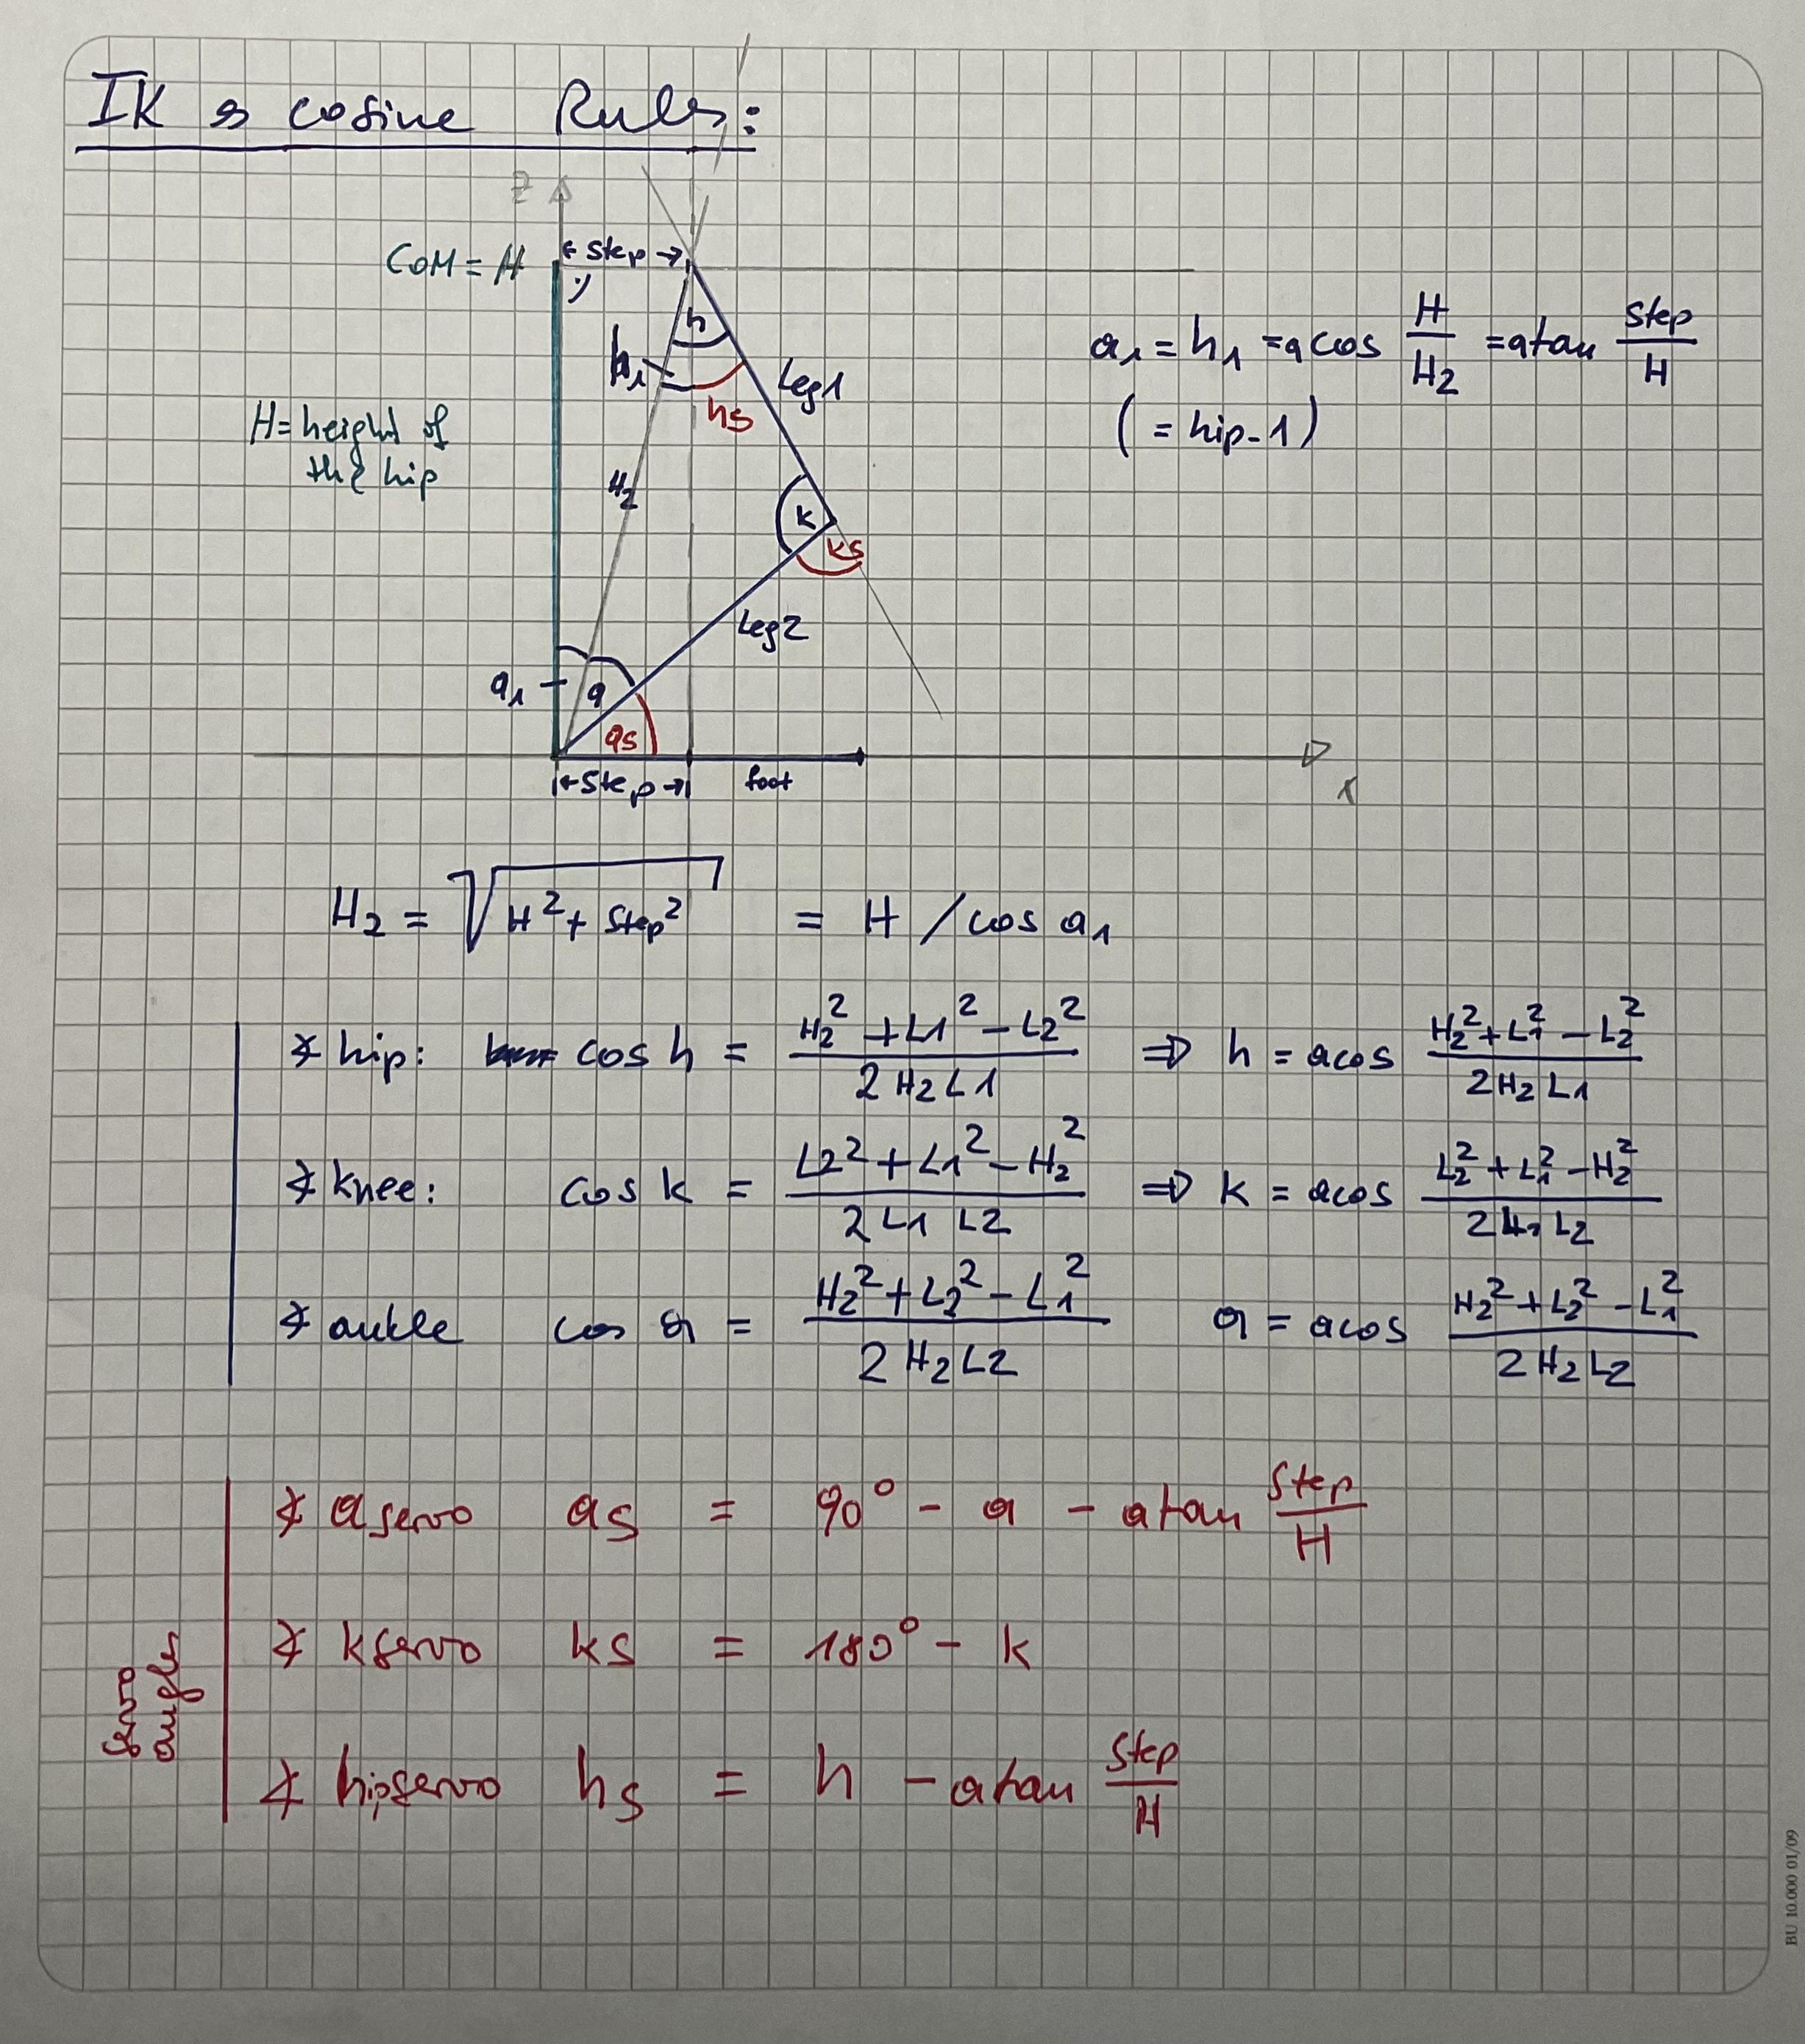 IK & cosine Rules:
Z
COM = H
← Step →
h
h₁
hs
Leg1
a₁ = h₁ = acos H/H₂ = atan Step/H
(= hip-1)
H = height of
the hip
H₂
k
ks
Leg2
a₁
a
as
← Step →
foot
x
H₂ = √(H² + Step²) = H / cos a₁
∡ hip: cos h = (H₂² + L1² - L2²) / (2 H₂ L1) ⇒ h = acos (H₂² + L1² - L2²) / (2 H₂ L1)
∡ knee: cos k = (L2² + L1² - H₂²) / (2 L1 L2) ⇒ k = acos (L2² + L1² - H₂²) / (2 L1 L2)
∡ ankle cos a = (H₂² + L2² - L1²) / (2 H₂ L2) a = acos (H₂² + L2² - L1²) / (2 H₂ L2)
Servo
angles
∡ aservo as = 90° - a - atan Step/H
∡ kservo ks = 180° - k
∡ hipservo hs = h - atan Step/H
BU 10.000 01/09